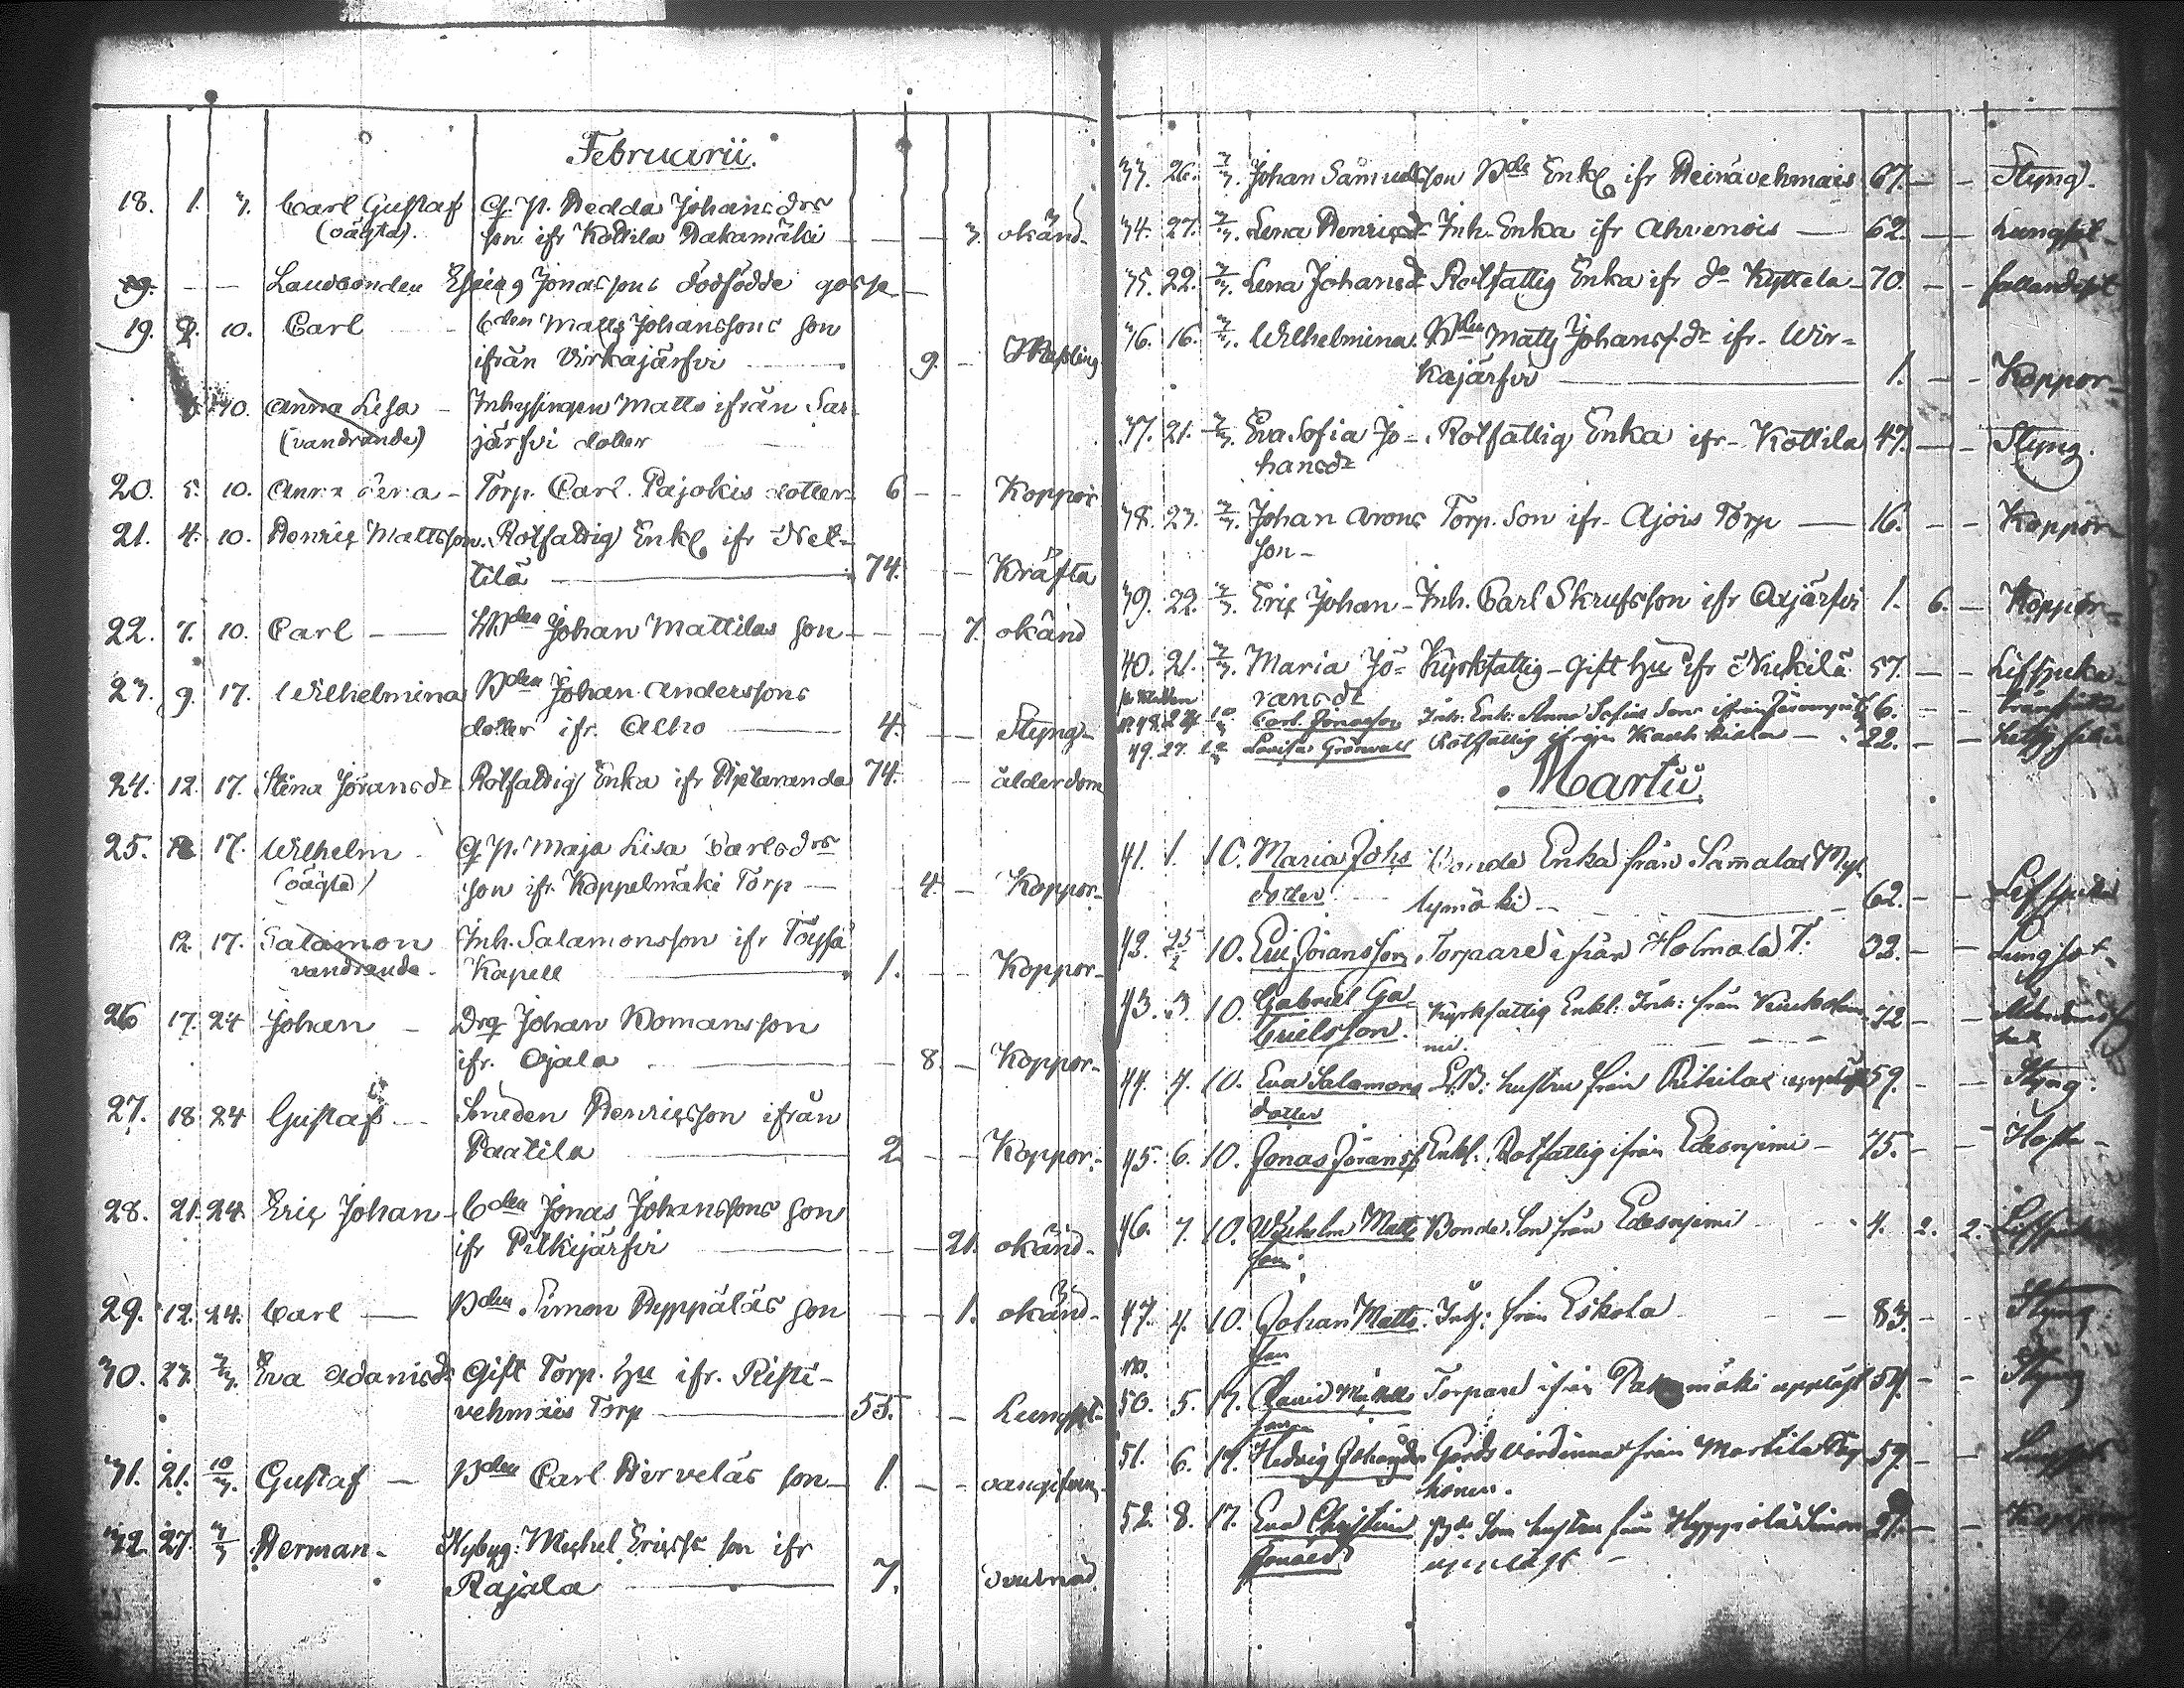 Februarii.
18. 1. 3. Carl Gustaf Q. P. Hedda Johansdrs
(oägta). son ifr Kottila Hakamäki — — — 3. okänd.
19. — — Landbonden Johanssons dödfödde gosse —
19. 2. 10. Carl Bden Matts Johanssons son
ifrån Virkajärfvi 9. — Messling
10. Anna Lisa — Inhysingen Matts ifrån Saa-
(vandrande) järfvi dotter
20. 5. 10. Anna Lena — Torp. Carl Pajokis dotter 6 — — Koppor
21. 4. 10. Henric Mattsson. Rotfattig Enkl. ifr Net-
tilä 74. — — Kräfta
22. 7. 10. Carl — LBden Johan Mattilas son — — — 7. okänd
23. 9. 17. Wilhelmina Bden Johan Anderssons
dotter ifr. Alho 4. — Styng —
24. 12. 17. Stina Jöransdr Rotfattig Enka ifr 74. — — ålderdom
25. 17. Wilhelm — Q. P. Maja Lisa Carlsdrs
(oägta) son ifr. Koppelmäki Torp — 4. — Koppor —
12. 17. Salamon Inh. Salamonsson ifr Töysä
vandrande. Kapell 1. — — Koppor —
26 17. 24 Johan — Drg Johan Romansson
ifr. Ojala 8. — Koppor —
27. 18 24 Gustaf — Smeden Henricsson ifrån
Paatila 2 — — Koppor. —
28. 21. 24. Eric Johan — Bden Jonas Johanssons son
ifr Pitkäjärfvi — — 21. okänd.
29. 12. 24. Carl — Bden Simon Heppäläs son — — 1. okänd.
30. 23. 3/3. Eva Adamsdr Gift Torp. Hu ifr. Risti-
vehmais Torp 55. — Lungsot
31. 21. 10/3. Gustaf — Bden Carl Hirveläs son — 1. — —
32. 27. 3/3 Herman. Nybyg. Michel Ericss son ifr
Rajala 7.
33. 26. 3/3. Johan Samuelsson Bde Enkl. ifr Heinävehmais 67. — — Styng.
34. 27. 3/3. Lena Henricsdr Inh. Enka ifr Ahvenois — 62. — — Lungsot —
35. 22. 3/3. Lena Johansdr Rotfattig Enka ifr do Kyttela 70. — — fallandesot
36. 16. 3/3. Wilhelmina Bden Matts Johanss. dr ifr. Wir-
kajärfvi 1. — — Koppor —
37. 21. 3/3. Eva Sofia Jo- Rotfattig Enka ifr. Kottila 47. — — Styng.
hansdr
38. 23. 3/3. Johan Arons Torp. Son ifr. Ajois Torp — 16. — — Koppor —
son —
39. 22. 3/3. Eric Johan — Inh. Carl Skrufs son ifr Axjärfvi 1. 6. — Koppor —
40. 21. 3/3. Maria Jö- Kyrkfattig — Gift Hu ifr Nickilä 57. — — Lifssjuka
ransdr
48. 24. 10 Carl Jonasson Inh. Enk. Anna Sofias son ifrån 6. — —
49. 27. Lovisa Grönvall Rotfattig ifrån 22. — —
Martii
41. 1. 10. Maria Johs Bonde Enka från Sammalas Myl-
dotter lymäki 62. — — Lifssjuka
42. 25/2 10. Eric Jöransson Torpare ifrån Holmala T. 32. — — Lungsot
43. 3. 10. Gabriel Ga- Kyrkfattig Enkl. Inh: från
brielsson. 72 — —
44. 4. 10. Eva Salamons L.B: hustru från 59. — — Styng.
dotter
45. 6. 10. Jonas Jöranss. Enkl. Rotfattig ifrån Edesniemi — 75. — — Hosta —
46. 7. 10. Wilhelm Matts Bonde Son från Edesniemi 4. 2. 2. Lifssjuka
son.
47. 4. 10. Johan Matts Inh: från Eskola 83. — — Styng
son
50. 5. 17. David Torpare ifrån 54. — — Styng
son
51. 6. 17. Hedvig Johansdr Gårds Värdinna från Markila 59. — — Lungsot
52. 8. 17. Eva Christina Bde Son hustru från Simon 27. — — Koppor
Jonasdr